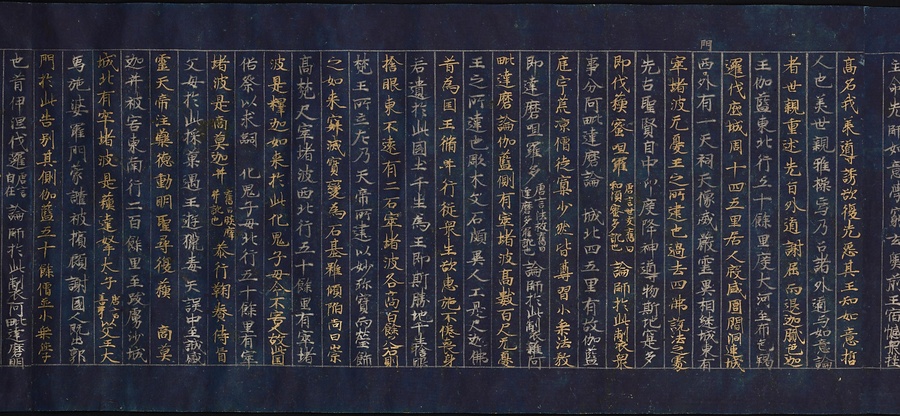 高名我承導誘欲復先怨其王知如意哲
人也美世親雅操焉乃召諸外道与如意論
者世親重述先旨外道謝屈而退迦膩色迦
王伽藍東北行五十餘里度大河至布色羯
邏伐底城周十四五里居人殷盛閭閻洞連城
門
西外有一天祠天像威嚴靈異相継城東有
窣堵波无憂王之所建也過去四佛説法之處
先古聖賢自中印度降神導物斯地寔多
即伐穪蜜呾羅唐言世友舊曰和須蜜多訛也論師於此製衆
事分阿毗達磨論 城北四五里有故伽藍
庭宇荒凉僧徒寡少然皆尊習小乘法教
即達磨呾羅多唐言法救舊曰達磨多羅訛也論師於此製雜阿
毗達磨論伽藍側有窣堵波高數百尺无憂
王之所建也彫木文石頗異人工是尺迦佛
昔爲国王脩菩薩行從衆生欲惠施不倦喪身
若遺於此國土千生爲王即斯勝地千生捨眼
捨眼東不遠有二石窣堵波各高百餘尺右則
梵王所立左乃天帝所建以妙珎寶而瑩飾
之如来寂滅寶變爲石基雖傾陷尚曰崇
高梵尺窣堵波西北行五十餘里有窣堵
波是釋迦如来於此化鬼子母令不害人故此國
俗祭以求嗣 化鬼子母北行五十餘里有窣
堵波是商莫迦菩薩舊曰睒摩菩薩訛也恭行鞠養侍盲
父母於此採菓遇王遊獵毒矢誤中至誠感
靈天帝注藥德動明聖尋復蘓 商莫
迦菩薩被害東南行二百餘里至跋虜沙城
城北有窣堵波是蘓達拏太子唐言善牙以父王大
象施婆羅門蒙譴被擯顧謝國人既出郭
門於此告別其側伽藍五十餘僧並小乘學
也昔伊濕伐邏唐言自在論師於此製阿毗達磨明